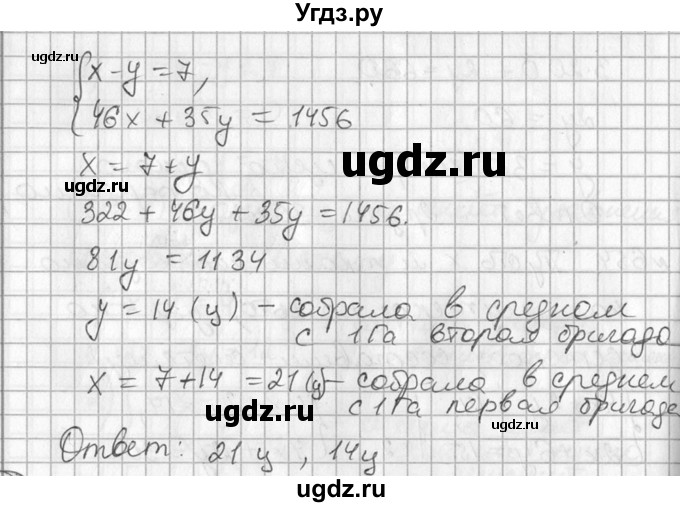 Угдз.ру
ugdz.ru
x - y = 7,
46x + 35y = 1456
ugdz.ru
x = 7 + y
ugdz.ru
322 + 46y + 35y = 1456.
81y = 1134
y = 14 (ц) - собрала в среднем
с 1 Га вторая бригада
x = 7 + 14 = 21 (ц) - собрала в среднем
с 1 Га первая бригада
ugdz.ru
Ответ: 21 ц, 14 ц
ugdz.ru
ugdz.ru